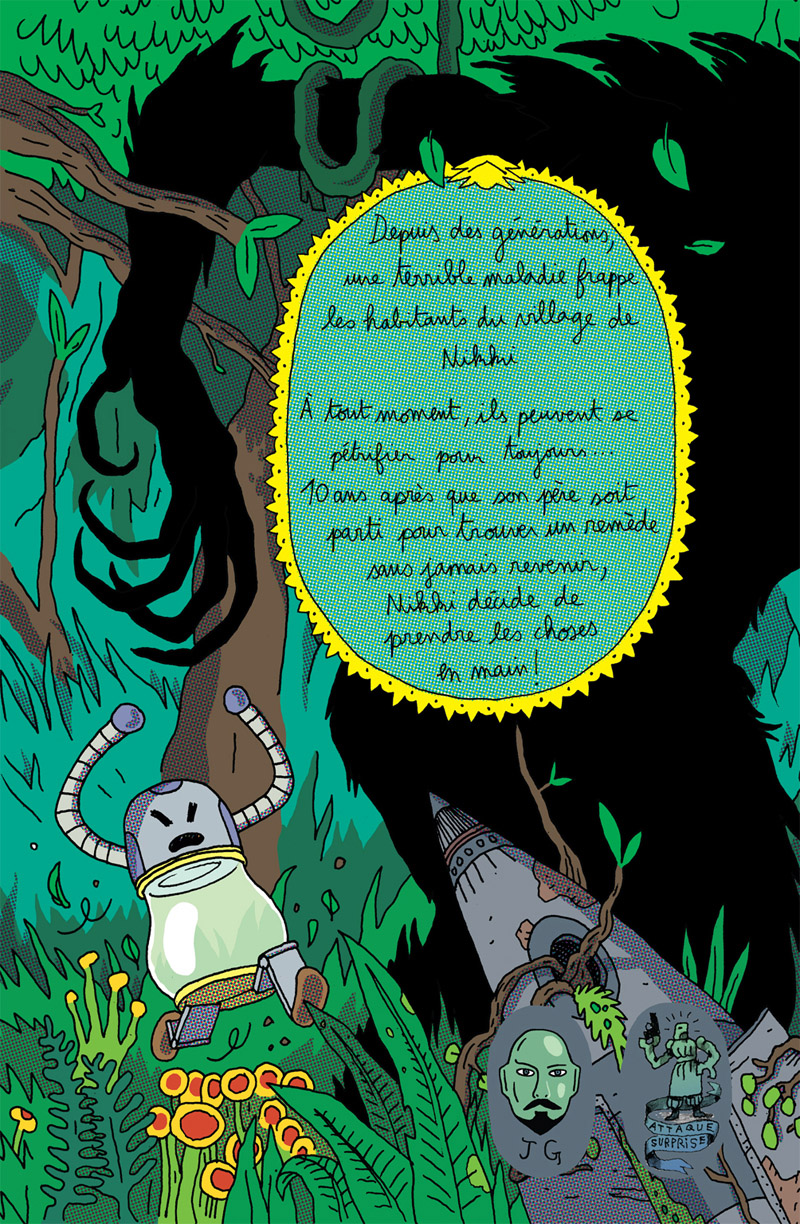 Depuis des générations,
une terrible maladie frappe
les habitants du village de
Nikki
À tout moment, ils peuvent se
pétrifier pour toujours...
10 ans après que son père soit
parti pour trouver un remède
sans jamais revenir,
Nikki décide de
prendre les choses
en main !
JG
ATTAQUE
SURPRISE